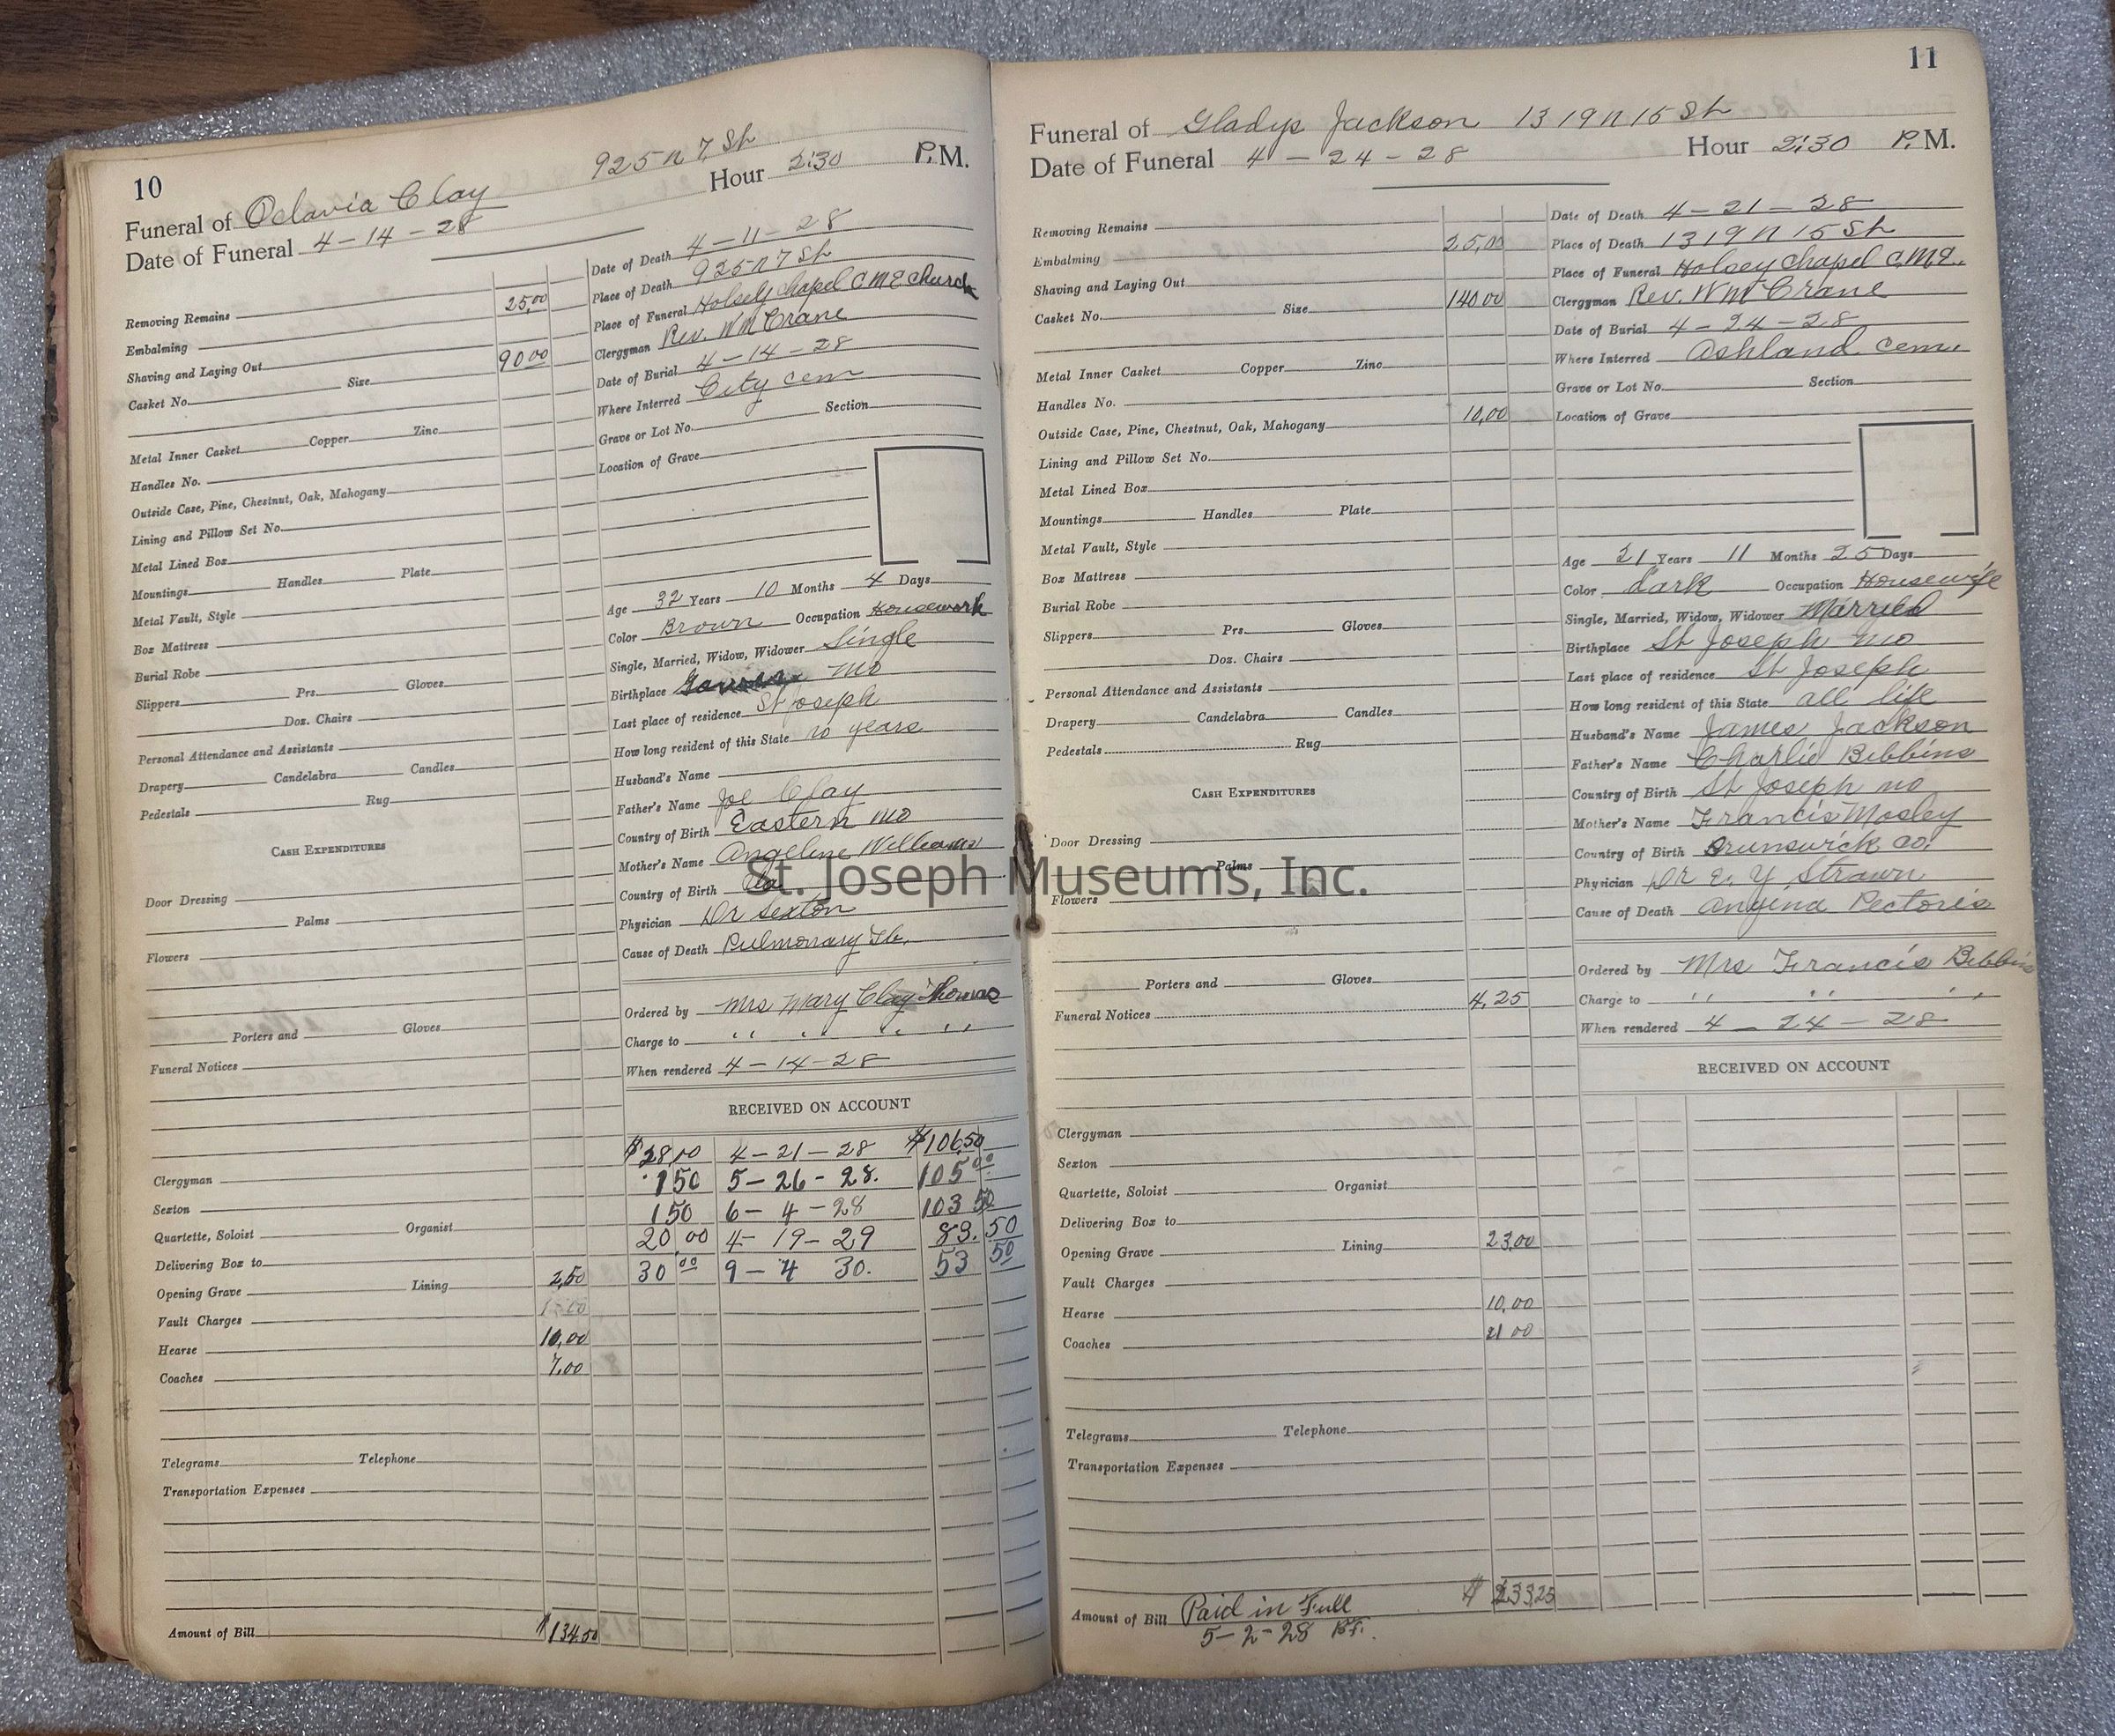 10
925 N 7 St
Funeral of Octavia Clay
Date of Funeral 4-14-28 Hour 2:30 P.M.
Removing Remains
Embalming 25.00
Shaving and Laying Out
Casket No. Size 90.00
Metal Inner Casket Copper Zinc
Handles No.
Outside Case, Pine, Chestnut, Oak, Mahogany
Lining and Pillow Set No.
Metal Lined Box
Mountings Handles Plate
Metal Vault, Style
Box Mattress
Burial Robe
Slippers Prs. Gloves
Doz. Chairs
Personal Attendance and Assistants
Drapery Candelabra Candles
Pedestals Rug
CASH EXPENDITURES
Door Dressing
Palms
Flowers
Porters and Gloves
Funeral Notices
Clergyman
Sexton
Quartette, Soloist Organist
Delivering Box to
Opening Grave Lining 2,50
Vault Charges
Hearse 10,00
Coaches 7.00
Telegrams Telephone
Transportation Expenses
Amount of Bill $134.50
Date of Death 4-11-28
Place of Death 925 N 7 St
Place of Funeral Holsely Chapel C M E Church
Clergyman Rev. WM Crane
Date of Burial 4-14-28
Where Interred City cem
Grave or Lot No. Section
Location of Grave
Age 32 Years 10 Months 4 Days
Color Brown Occupation Housework
Single, Married, Widow, Widower Single
Birthplace Mo
Last place of residence St Joseph
How long resident of this State 20 years
Husband's Name
Father's Name Joe Clay
Country of Birth Eastern Mo
Mother's Name Angeline Williams
Country of Birth
Physician Dr Sexton
Cause of Death Pulmonary Tb.
Ordered by Mrs Mary Clay Thomas
Charge to " " " "
When rendered 4-14-28
RECEIVED ON ACCOUNT
$28,00 4-21-28 $106.50
150 5-26-28. 105 00
150 6-4-28 103 50
20,00 4-19-29 83.50
30 00 9-4 30. 53 50
11
Funeral of Gladys Jackson 1319 N 15 St
Date of Funeral 4-24-28 Hour 2:30 P.M.
Removing Remains
Embalming 25,00
Shaving and Laying Out
Casket No. Size 140 00
Metal Inner Casket Copper Zinc
Handles No.
Outside Case, Pine, Chestnut, Oak, Mahogany 10,00
Lining and Pillow Set No.
Metal Lined Box
Mountings Handles Plate
Metal Vault, Style
Box Mattress
Burial Robe
Slippers Prs. Gloves
Doz. Chairs
Personal Attendance and Assistants
Drapery Candelabra Candles
Pedestals Rug
CASH EXPENDITURES
Door Dressing
Palms
Flowers
Porters and Gloves
Funeral Notices 4,25
Clergyman
Sexton
Quartette, Soloist Organist
Delivering Box to
Opening Grave Lining 23,00
Vault Charges
Hearse 10,00
Coaches 21 00
Telegrams Telephone
Transportation Expenses
Amount of Bill Paid in Full $ 233.25
5-2-28
Date of Death 4-21-28
Place of Death 1319 N 15 St
Place of Funeral Holsey Chapel C.M.E.
Clergyman Rev. WM Crane
Date of Burial 4-24-28
Where Interred Ashland cem.
Grave or Lot No. Section
Location of Grave
Age 21 Years 11 Months 25 Days
Color dark Occupation Housewife
Single, Married, Widow, Widower Married
Birthplace St Joseph Mo
Last place of residence St Joseph
How long resident of this State all life
Husband's Name James Jackson
Father's Name Charlie Bibbins
Country of Birth St Joseph Mo
Mother's Name Francis Mosley
Country of Birth Brunswick Co.
Physician Dr E. Y. Strawn
Cause of Death Angina Pectoris
Ordered by Mrs Francis Bibbins
Charge to " " " "
When rendered 4-24-28
RECEIVED ON ACCOUNT
St. Joseph Museums, Inc.